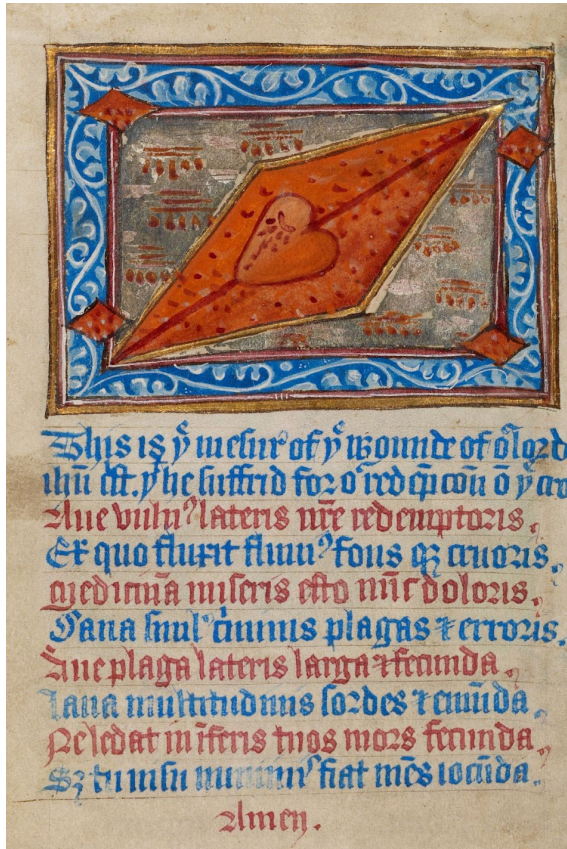 This is yͤ mesur of yͤ wounde of oͬ lord
ihu xp̄t. yͭ he suffrid for oͬ redēpcoū ō yͤ cro
Aue vuln⁹ lateris nr̄e redemptoris.
Ex quo fluxit flum⁹ fons qꝫ cruoris.
Medicina miseris esto nūc doloris.
Sana simul crīminis plagas ⁊ erroris.
Aue plaga lateris larga ⁊ fecunda.
Laua multitudinis sordes ⁊ emūda.
Ne ledat in īferis tuos mors secunda.
Sꝫ tu fiat mēs iocūda.
Amen.